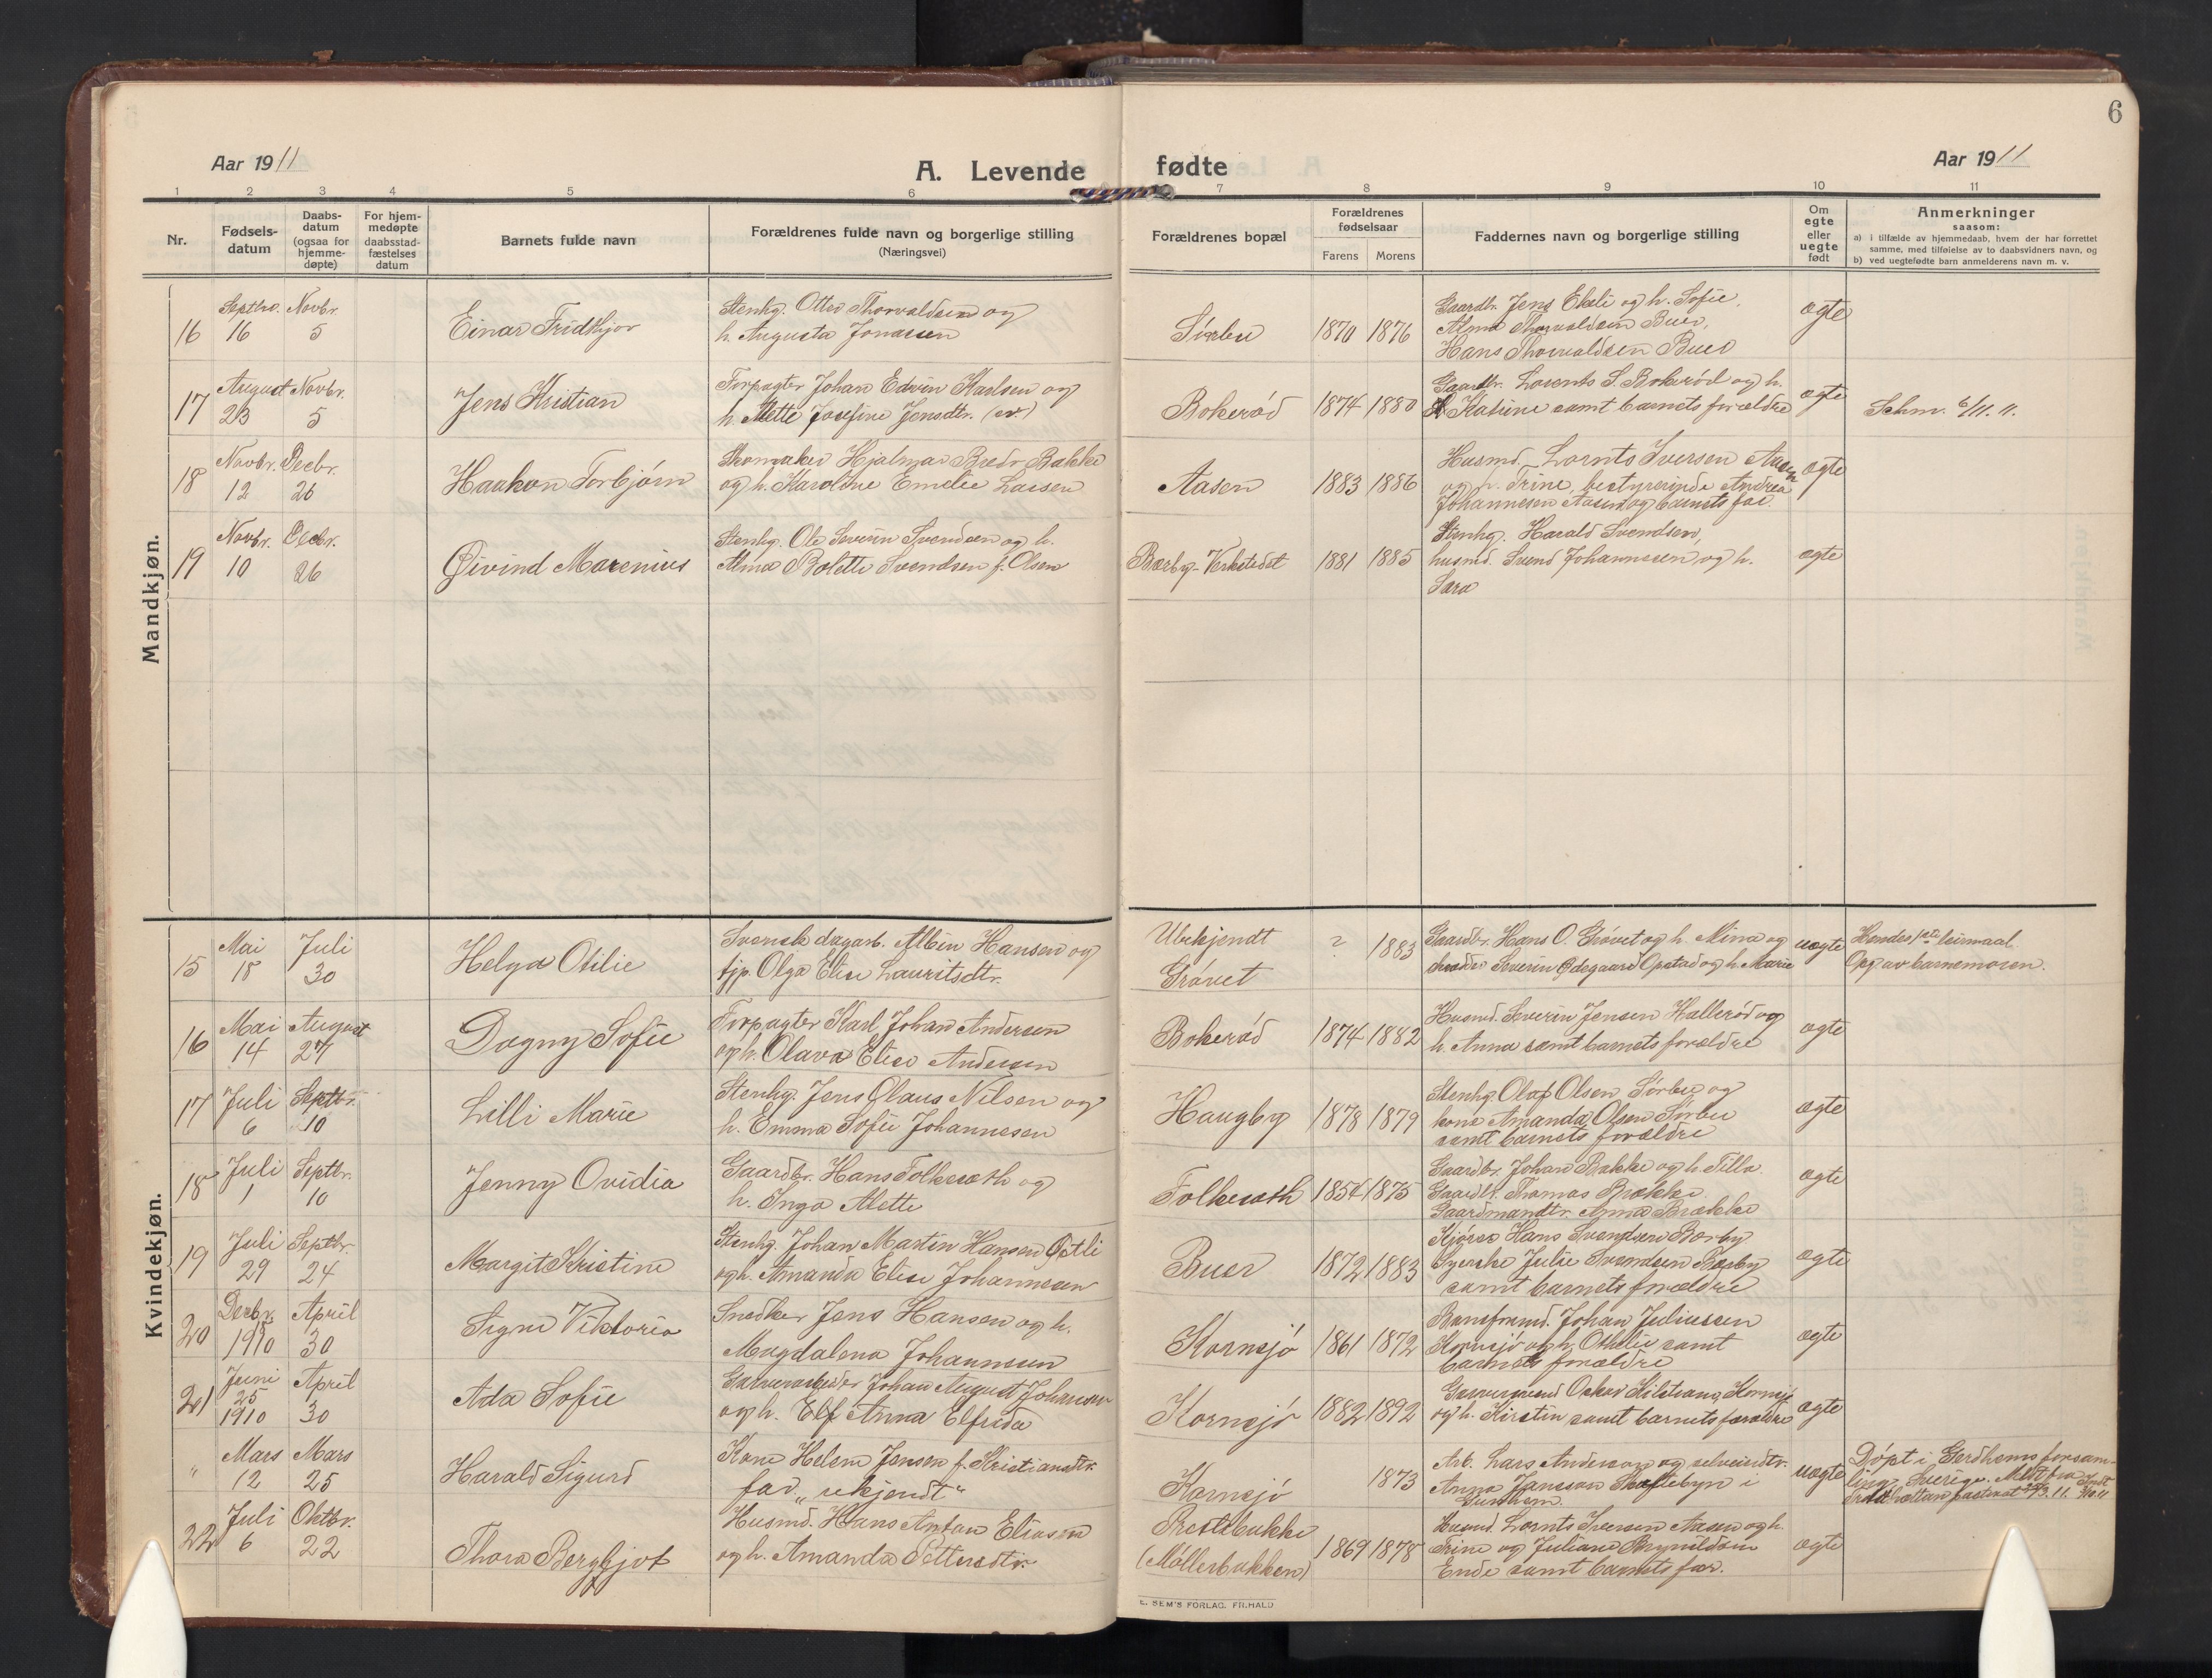 6
Aar 1911
A. Levende
fødte
Aar 1911
1 2 3 4 5 6 7 8 9 10 11
Nr.
Fødsels-
datum
Daabs-
datum
(ogsaa for
hjemme-
døpte)
For hjem-
medøpte
daabsstad-
fæstelses
datum
Barnets fulde navn
Forældrenes fulde navn og borgerlige stilling
(Næringsvei)
Forældrenes bopæl
Forældrenes
fødselsaar
Farens Morens
Faddernes navn og borgerlige stilling
Om
egte
eller
uegte
født
Anmerkninger
saasom:
a) i tilfælde av hjemmedaab, hvem der har forrettet
samme, med tilføielse av to daabsvidners navn, og
b) ved uegtefødte barn anmelderens navn m. v.
Mandkjøn.
16
Septbr.
16
Novbr.
5
Einar Fridthjov
Stenhg. Otto Thorvaldsen og
h. Augusta Jonassen
Sørbu
1870 1876
Gaardbr. Jens Ekeli og h. Sofie,
Alma Thorvaldsen Buer,
Hans Thorvaldsen Buer
egte
17
August
23
Novbr.
5
Jens Kristian
Forpagter Johan Edvin Karlsen og
h. Mette Josefine Jensdtr. (sv.)
Bokerød
1874 1880
Gaardbr. Lorents S. Bokerød og h.
Katrine samt barnets forældre
egte
Schm. 6/11. 11.
18
Novbr.
12
Decbr.
26
Haakon Torbjørn
Skomaker Hjalmar Bredr. Bakke
og h. Karoline Emelie Larsen
Aasen
1883 1886
Husmd. Lornts Iversen Aasen
og h. Trine, bestyrerinde Andrea
Johannesen Aasen og barnets far.
egte
19
Novbr.
10
Decbr.
26
Øivind Marenius
Stenhg. Ole Severin Svendsen og h.
Alma Bolette Svendsen f. Olsen
Bærby-Verkstedet
1881 1885
Stenhg. Harald Svendsen,
husmd. Svend Johannessen og h.
Sara
egte
Kvindekjøn.
15
Mai
18
Juli
30
Helga Otilie
Svensk dagarb. Albin Hansen og
tjp. Olga Elise Lauritsdtr.
Ubekjendt
Grøvet
? 1883
Gaardbr. Hans O. Grøvet og h. Mina og
Severin Ødegaard Opstad og h. Marie
uegte
Hendes 1ste leiermaal.
Opg. av barnemoren.
16
Mai
14
August
27
Dagny Sofie
Forpagter Karl Johan Andersen
og h. Olava Elise Andersen
Bokerød
1874 1882
Husmd. Severin Jensen Hallerød og
h. Anna samt barnets forældre
egte
17
Juli
6
Septbr.
10
Lilli Marie
Stenhg. Jens Olaus Nilsen og
h. Emma Sofie Johannesen
Haugby
1878 1879
Stenhg. Olaf Olsen Sørbu og
kone Amanda Olsen Sørbu
samt barnets forældre
egte
18
Juli
1
Septbr.
10
Jenny Ovidia
Gaardbr. Hans Folkerath og
h. Inga Mette
Folkerath
1854 1875
Gaardbr. Johan Bakke og h. Tilla
Gaardbr. Thomas Brække
Gaardmandtr. Anna Brække
egte
19
Juli
29
Septbr.
24
Margit Kristine
Stenhg. Johan Martin Hansen Østli
og h. Amanda Elise Johannesen
Buer
1872 1883
Kjører Hans Svendsen Bærby
Syerske Julie Svendsen Bærby
samt barnets forældre
egte
20
Decbr.
1910
April
30
Signe Viktoria
Snedker Jens Hansen og h.
Magdalena Johannesen
Kornsjø
1861 1872
Baneformd. Johan Juliussen
Kornsjø og h. Othelie samt
barnets forældre
egte
21
Juni
25
1910
April
30
Ada Sofie
Garverarbeider Johan August Johansen
og h. Elf Anna Elfrida
Kornsjø
1882 1892
Garversvend Oskar Kilstrand, Kornsjø
og h. Kirstin samt barnets forældre
egte
"
Mars
12
Mars
25
Harald Sigurd
Kone Helene Jensen f. Kristiansdtr.
far „ukjendt“
Kornsjø
1873
Arb. Lars Andersson og selveiedtr.
Anna Jansson Skaftebyn i
Gunhem.
uegte
Døpt i Gerdhems forsam-
ling, Sverige. Meldt fra
Trollhættan pastorat 29/3. 11.
22
Juli
6
Oktbr.
22
Thora Bergljot
Husmd. Hans Anton Eliasen
og h. Amanda Pettersdtr.
Prestebakke
(Møllerbakken)
1869 1878
Husmd. Lornts Iversen Aasen og h.
Trine og Juliane Brynildsen
Ende samt barnets far.
egte
E. SEM'S FORLAG. FR.HALD